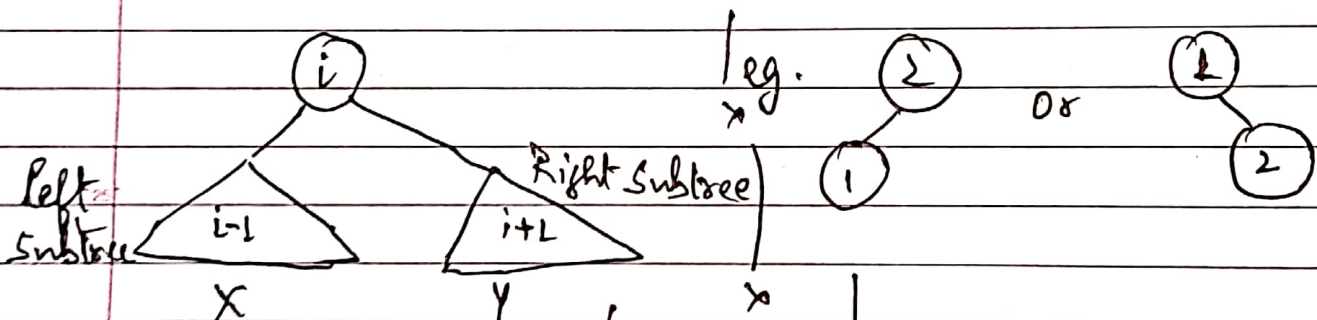 i
eg.
2
Or
1
Left
Subtree
i-1
Right Subtree
i+1
1
2
X
Y